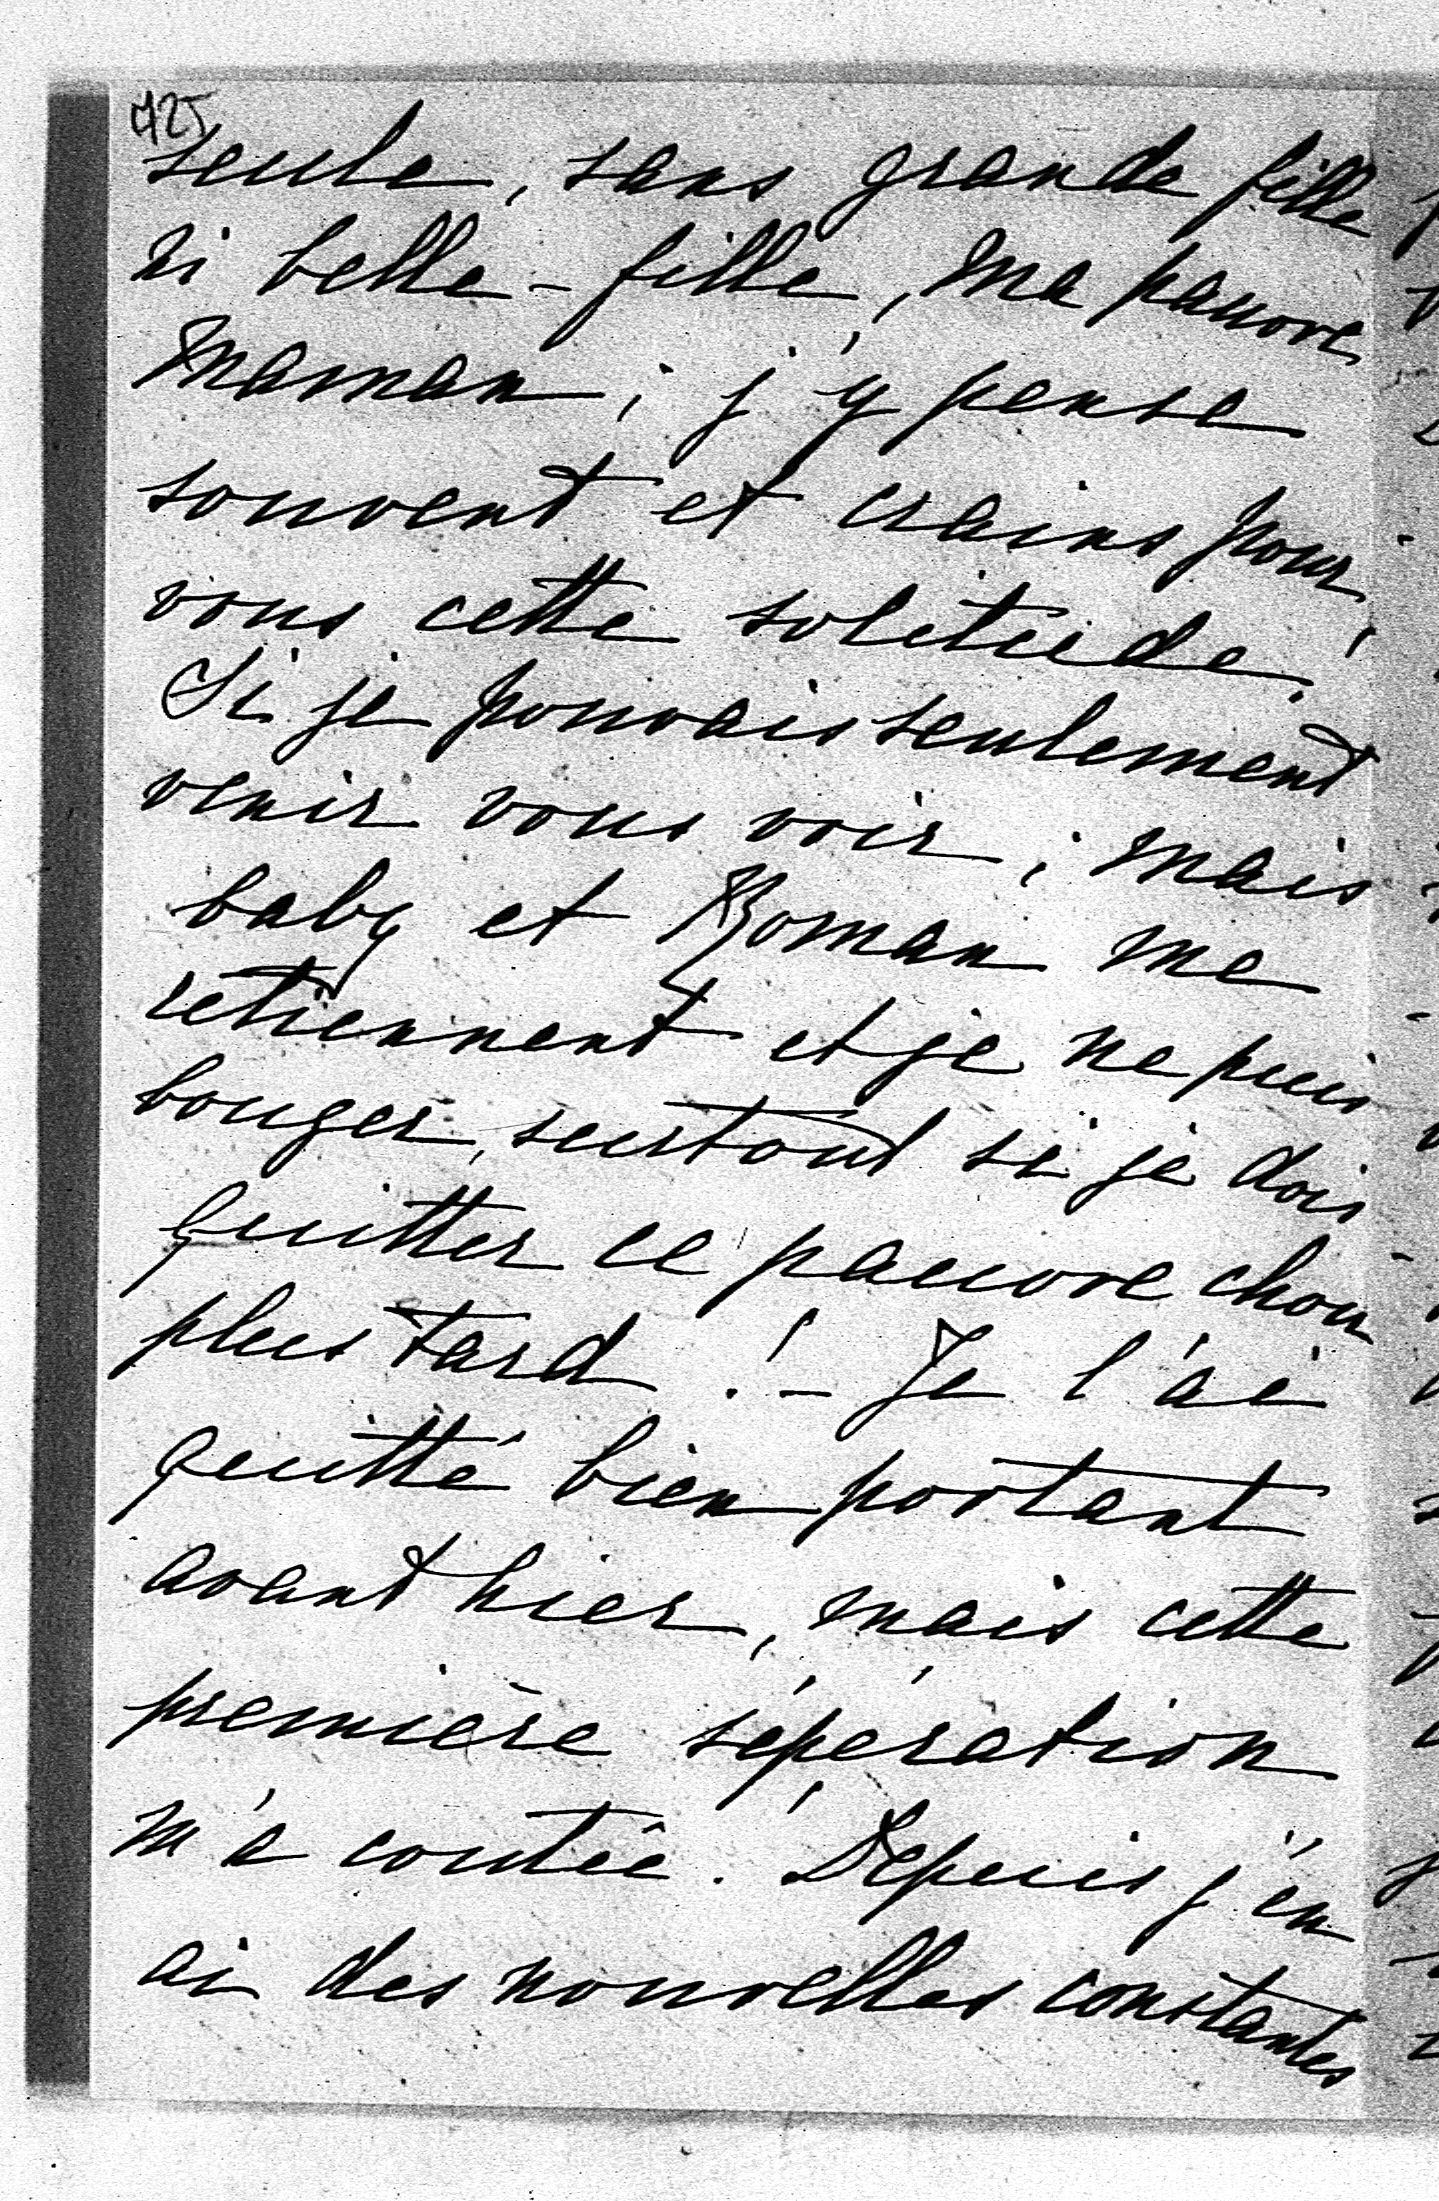 425
seule, sans grande fille
ni belle-fille, ma pauvre
Maman ; j'y pense
souvent et crains pour
vous cette solitude !
Si je pouvais seulement
venir vous voir ; mais
baby et Roman me
retiennent et je ne puis
bouger, surtout si je dois
quitter ce pauvre chou
plus tard ! – Je l'ai
quitté bien portant
avant hier, mais cette
première séperation
m'a coutée ! Depuis j'en
ai des nouvelles constantes